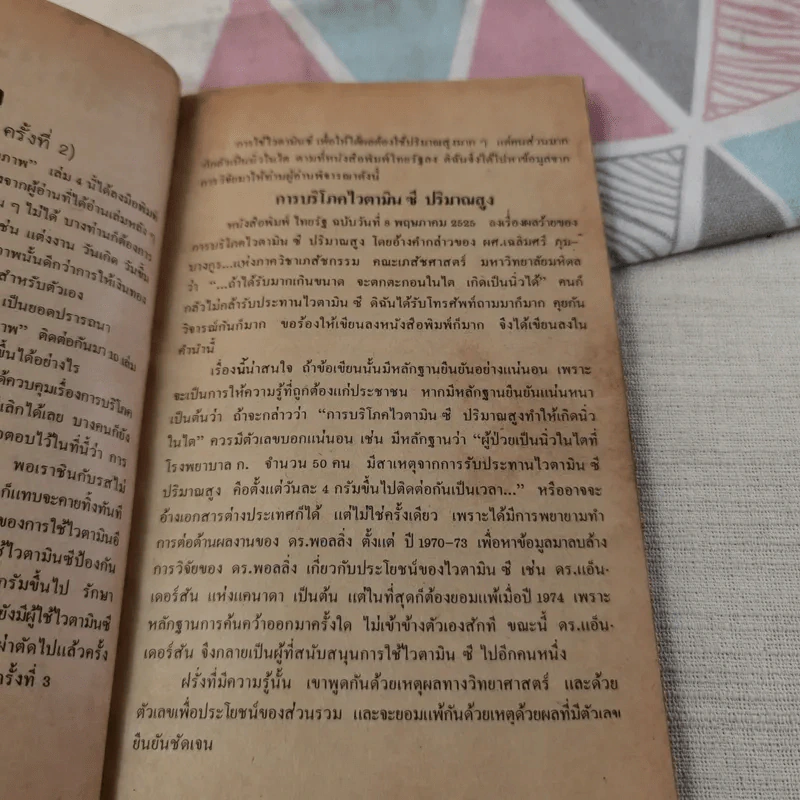 ครั้งที่ 2)
ภาพ” เล่ม 4 นี้ได้ลงมือพิมพ์
จากผู้อ่านที่ได้อ่านเล่มหลัง ๆ
น ๆ ไม่ได้ บางท่านก็ต้องการ
ช่น แต่งงาน วันเกิด วันขึ้น
าพนั้นดีกว่าการให้เงินทอง
สำหรับตัวเอง
เป็นยอดปรารถนา
ภาพ” ติดต่อกันมา 10 เล่ม
ขึ้นได้อย่างไร
ด้ควบคุมเรื่องการบริโภค
เลิกได้เลย บางคนก็ยัง
วตอบไว้ในที่นี้ว่า การ
พอเราชินกับรสไม่
ก็แทบจะคายทิ้งทันที
ของการใช้ไวตามินอี
ร้ไวตามินซีป้องกัน
กรัมขึ้นไป รักษา
ยังมีผู้ใช้ไวตามินซี
ผ่าตัดไปแล้วครั้ง
รั้งที่ 3
การใช้ไวตามินซี เพื่อให้ได้ผลต้องใช้ปริมาณสูงมาก ๆ แต่คนส่วนมาก
เกิดกลัวเป็นนิ่วในไต ตามที่หนังสือพิมพ์ไทยรัฐลง ดิฉันจึงได้ไปหาข้อมูลจาก
การวิจัยมาให้ท่านผู้อ่านพิจารณาดังนี้
การบริโภคไวตามิน ซี ปริมาณสูง
หนังสือพิมพ์ ไทยรัฐ ฉบับวันที่ 8 พฤษภาคม 2525 ลงเรื่องผลร้ายของ
การบริโภคไวตามิน ซี ปริมาณสูง โดยอ้างคำกล่าวของ ผศ.เฉลิมศรี ภุม-
บางกูร...แห่งภาควิชาเภสัชกรรม คณะเภสัชศาสตร์ มหาวิทยาลัยมหิดล
ว่า “...ถ้าได้รับมากเกินขนาด จะตกตะกอนในไต เกิดเป็นนิ่วได้” คนก็
กลัวไม่กล้ารับประทานไวตามิน ซี ดิฉันได้รับโทรศัพท์ถามมาก็มาก คุยกัน
วิจารณ์กันก็มาก ขอร้องให้เขียนลงหนังสือพิมพ์ก็มาก จึงได้เขียนลงใน
คำนำนี้
เรื่องนี้น่าสนใจ ถ้าข้อเขียนนั้นมีหลักฐานยืนยันอย่างแน่นอน เพราะ
จะเป็นการให้ความรู้ที่ถูกต้องแก่ประชาชน หากมีหลักฐานยืนยันแน่นหนา
เป็นต้นว่า ถ้าจะกล่าวว่า “การบริโภคไวตามิน ซี ปริมาณสูงทำให้เกิดนิ่ว
ในไต” ควรมีตัวเลขบอกแน่นอน เช่น มีหลักฐานว่า “ผู้ป่วยเป็นนิ่วในไตที่
โรงพยาบาล ก. จำนวน 50 คน มีสาเหตุจากการรับประทานไวตามิน ซี
ปริมาณสูง คือตั้งแต่วันละ 4 กรัมขึ้นไปติดต่อกันเป็นเวลา...” หรืออาจจะ
อ้างเอกสารต่างประเทศก็ได้ แต่ไม่ใช่ครั้งเดียว เพราะได้มีการพยายามทำ
การต่อต้านผลงานของ ดร.พอลลิ่ง ตั้งแต่ ปี 1970–73 เพื่อหาข้อมูลมาลบล้าง
การวิจัยของ ดร.พอลลิ่ง เกี่ยวกับประโยชน์ของไวตามิน ซี เช่น ดร.แอ็น-
เดอร์สัน แห่งแคนาดา เป็นต้น แต่ในที่สุดก็ต้องยอมแพ้เมื่อปี 1974 เพราะ
หลักฐานการค้นคว้าออกมาครั้งใด ไม่เข้าข้างตัวเองสักที ขณะนี้ ดร.แอ็น-
เดอร์สัน จึงกลายเป็นผู้ที่สนับสนุนการใช้ไวตามิน ซี ไปอีกคนหนึ่ง
ฝรั่งที่มีความรู้นั้น เขาพูดกันด้วยเหตุผลทางวิทยาศาสตร์ และด้วย
ตัวเลขเพื่อประโยชน์ของส่วนรวม และจะยอมแพ้กันด้วยเหตุด้วยผลที่มีตัวเลข
ยืนยันชัดเจน